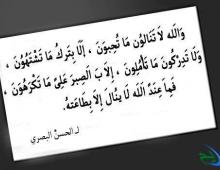 وَاللَّهِ لَا تَنَالُونَ مَا تُحِبُّونَ ، إِلَّا بِتَركِ مَا تَشْتَهُونَ ،
وَلَا تُدرِكُونَ مَا تَأمَلُونَ ، إِلَّا بَ الصَبرِ عَلَىٰ مَا تَكْرَهُونَ ،
فَمَا عِندَ اللَّه لَا يُنَالُ إِلَّا بِطَاعَتِهُ .
لـ الحسَنُ البصري